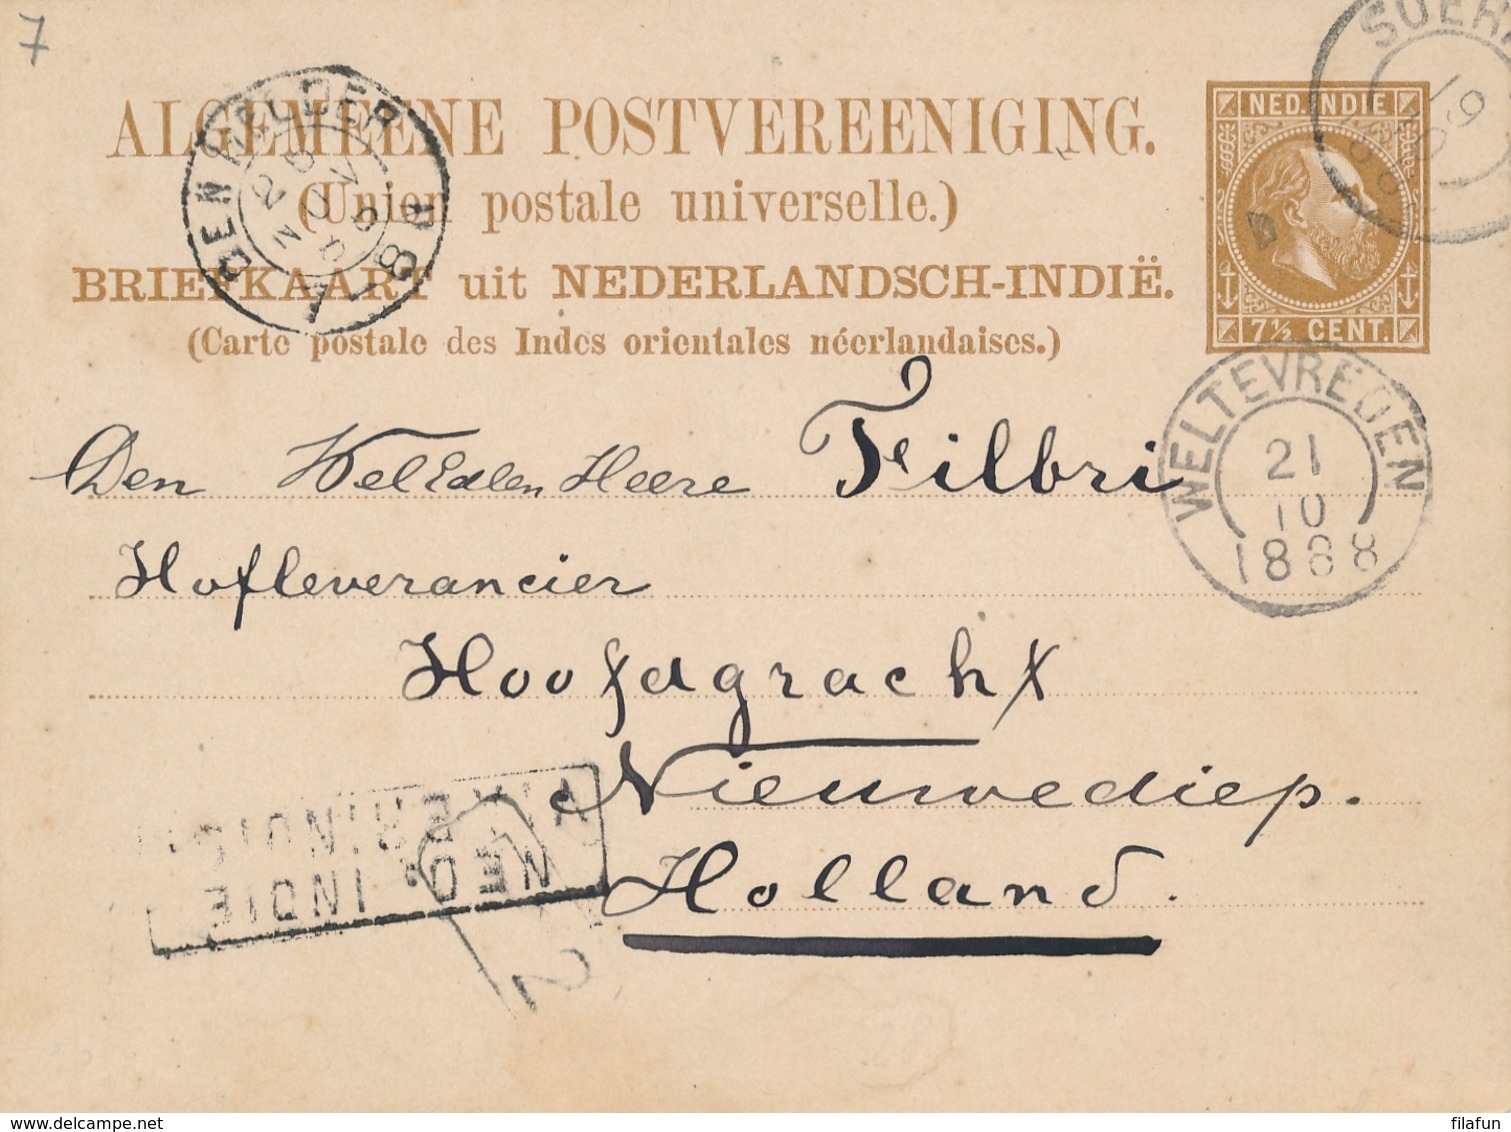 7
ALGEMEENE POSTVEREENIGING.
(Union postale universelle.)
BRIEFKAART uit NEDERLANDSCH-INDIË.
(Carte postale des Indes orientales néerlandaises.)
NED. INDIE
7½ CENT.
DEN HELDER
25
NOV
88
7-8V
SOERA
19
10
WELTEVREDEN
21
10
1888
Den WelEdelen Heere Filbri
Hofleverancier
Hoofdgracht
Nieuwediep.
Holland.
NED. INDIE
delcampe.net
filafun